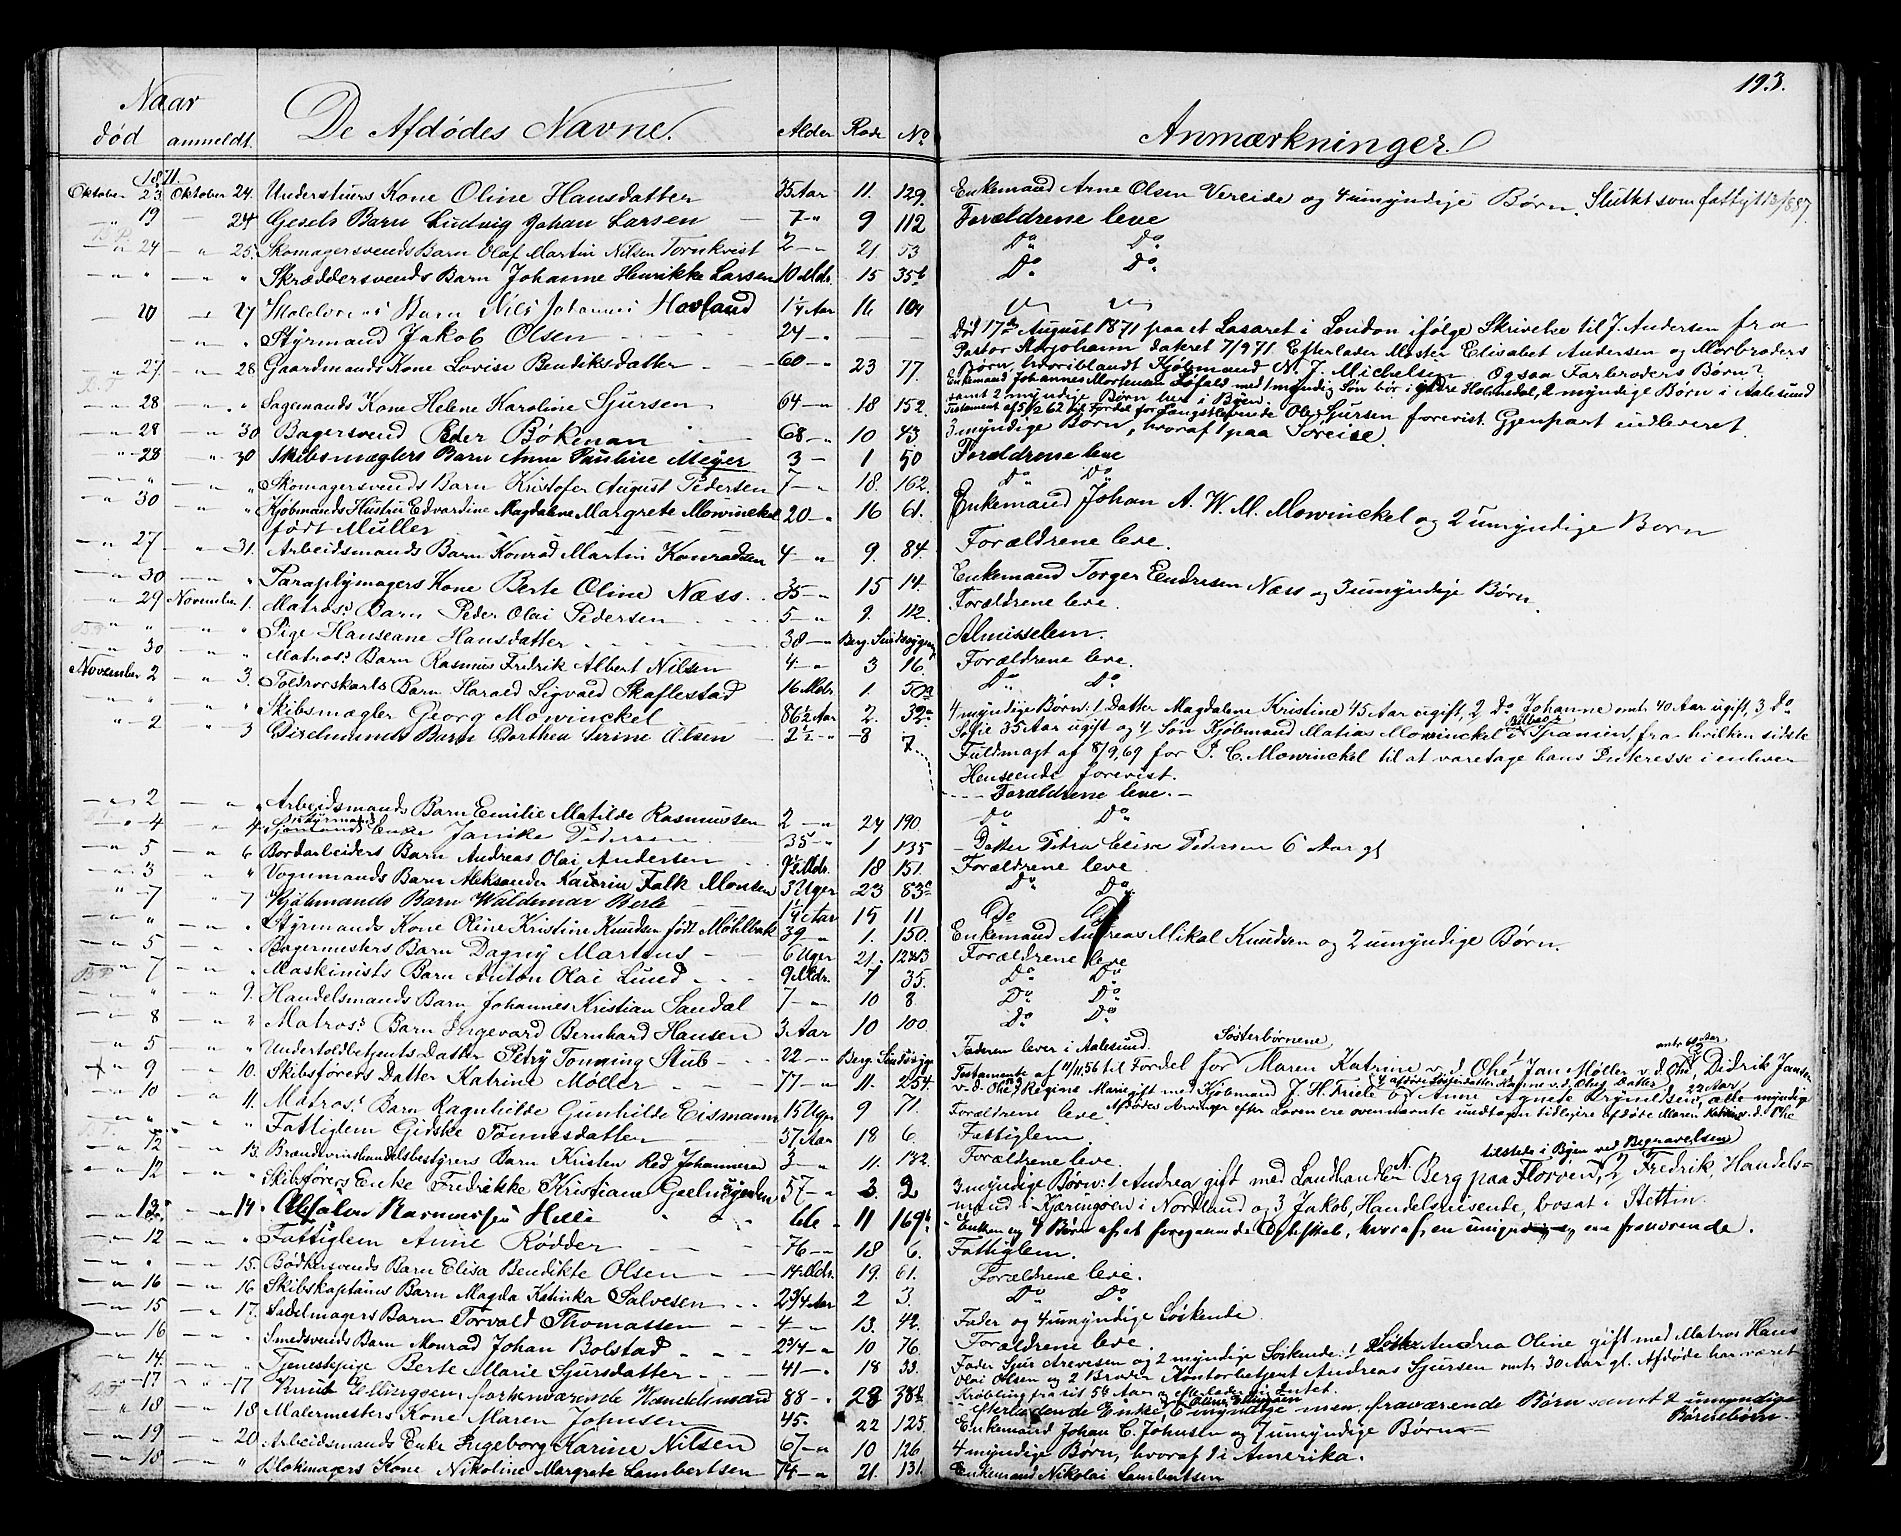 193.
Naar
død anmeldt. De Afdødes Navne. Alder Rode No. Anmærkninger.
1871.
Oktober 23 Oktober 24. Understuers Kone Oline Hansdatter 35 Aar 11. 129. Enkemand Arne Olsen Vereide og 4 umyndige Børn. Sluttet som fattigt
" 19 — 24 Gesels Barn Ludvig Johan Larsen — 7 — " 9 112 Forældrene leve
" 24 — " 25. Skomagersvends Barn Olaf Martin Nilsen Tornkvist 2 — " 21 53 Do. Do.
" " — " " Skræddersvends Barn Johanne Henrikke Larsen 10 Mdr. 15 35b Do. Do.
20 — " 27 Barn Nils Johannes Hovland 1¼ Aar 16 104
— " " Styrmand Jakob Olsen 24 — " — Død 17de August 1871 paa et Lasaret i London ifølge Skrivelse til J. Andersen fra
Pastor Storjohann dateret 7/9 71. Efterlader Moster Elisabet Andersen og Morbroders
Børn, hvoriblandt Kjøbmand N. J. Michelsen. Ogsaa Farbroders Børn?
" 27 — " 28 Gaardmands Kone Lovise Bendiksdatter — 60 — " 23 77. Enkemand Johannes Mortensen Løfald med 1 myndig Søn bor i ydre Holmedal, 2 myndige Børn i Aalesund
samt 2 myndige Børn her i Byen.
" 28 — " " Sagemands Kone Helene Karoline Sjursen 64 — " 18 152. Testament af 5/12 62 til Fordel for Længstlevende Ole Sjursen forevist. Gjenpart indleveret.
" 28 — " 30 Bagersvend Peder Bøkman 68 — " 10 43. 3 myndige Børn, hvoraf 1 paa Søreise.
" 28 — " 30 Skibsmæglers Barn Anna Pauline Meyer 3 — 1 50 Forældrene leve
" " — " " Skomagersvends Barn Kristofer August Pedersen 7 — " 18. 162. Do. Do.
" 30 — " " Kjøbmands Hustru Edvardine Magdalene Margrete Mowinckel 20 — " 16 61. Enkemand Johan A. W. M. Mowinckel og 2 umyndige Børn
født Müller
" 27 — " 31. Arbeidsmands Barn Konrad Martin Konradsen 4 — " 9. 84. Forældrene leve.
" 30 — " " Paraplymagers Kone Berte Oline Næss 35 — " 15 14. Enkemand Torger Endresen Næss og 3 umyndige Børn.
" 29 November 1. Matros's Barn Peder Olai Pedersen 5 — " 9. 112. Forældrene leve.
" " — " " Pige Hanseane Hansdatter 38 — " Berg. Sindssygeas. Almisselem.
" 30 — " " Matros's Barn Rasmus Fredrik Albert Nilsen 4 — " 3 16. Forældrene leve.
November 2 — " 3. Toldrorskarls Barn Harald Sigvald Skaflestad 16 Mdr. 1. 50a Do. Do.
" " — " " Skibsmægler Georg Mowinckel 86½ Aar 2. 32a 4 myndige Børn: 1 Datter Magdalene Kristine 45 Aar ugift, 2 Do. Johanne omtr. 40 Aar ugift, 3 Do.
Sofie 35 Aar ugift og 4 Søn Kjøbmand Matias Mowinckel i Bilbao i Spanien, fra hvilken sidste
Fuldmagt af 8/9 69 for P. C. Mowinckel til at varetage hans Interesse i enhver
Henseende forevist.
" 2 — " 3 Barn Dorthea Serine Olsen 2½ — " 8 7. Forældrene leve. —
" 2 — " " Arbeidsmands Barn Emilie Matilde Rasmussen 2 — " 24 190. Do. Do.
" 4 — " 4. Styrmands Enke Janike Pedersen 35 — " 1 135 Datter Petra Elise Pedersen 6 Aar gl
" 5 — " 6 Bordarbeiders Barn Andreas Olai Andersen 9½ Mdr. 18 151. Forældrene leve
" 3 — " " Vognmands Barn Aleksander Falk Monsen 3 Uger 23 83c Do. Do.
" 7 — " 7 Kjøbmands Barn Waldemar Berle 1¼ Aar 15 11 Do Do
" " — " " Styrmands Kone Oline Kristine Knudsen født Møhlbak 39 " 1. 150. Enkemand Andreas Mikal Knudsen og 2 umyndige Børn.
" 5 — " " Bagermesters Barn Dagny Martens 6 Uger 21. Forældrene leve
" 7 — " " Maskinists Barn Anton Olai Lund 9 Mdr. 7 35. Do. Do.
" " — 9. Handelsmands Barn Johannes Kristian Sandal 7 — " 10 8. Do. Do.
" 8 — " " Matros's Barn Ingevard Bernhard Hansen 3 Aar 10 100. Do. Do.
" 5 — " " Undertoldbetjents Datter Petry Tonning Stub 22 — " Berg. Sindssyge Faderen lever i Aalesund.
" 9 — " 10. Skibsførers Datter Katrine Møller 77 — " 11. 254. Testamente af 11/11 56 til Fordel for Søsterbørnene Maren Katrine v. d. Ohe, Jan Møller v. d. Ohe, Didrik Jansen
v. d. Ohe, Regine Marie gift med Kjøbmand J. H. Friele og Anne Agnete 22 Aar, alle myndige
" 10 — " 11. Matros's Barn Ragnhilde Gunhilde Eismann 15 Ugr 9 71. Forældrene leve Afdødes Arvinger efter Loven ere ovennævnte undtagen tidligere afdøde Maren Katrine v. d. Ohe
" " — " " Fattiglem Gidske Tønnesdatter 57 Aar 18 6. Fattiglem.
" 12 — " 13. Brændevinshandelsbestyrers Barn Kristen Red Johannesen 3 — " 11. 132. Forældrene leve.
tilstede i Byen ved Begravelsen
" 12 — " " Skibsførers Enke Fredrikke Kristiane Geelmuyden 57 — " 3. 2 3 myndige Børn: 1 Andrea gift med Landhandler N. Berg paa Florøen, 2 Fredrik, Handels=
mand i Kjæringøen i Nordland og 3 Jakob, Handelsreisende, bosat i Stettin.
" 13 — " 14. Rasmussen Helle 66 — " 11 169b Enken og 7 Børn af et foregaaende Ægteskab, hvoraf en fraværende.
" 12 — " " Fattiglem Anne Rødder 76 — " 18 6. Fattiglem.
" " — " 15. Bødkersvends Barn Elisa Bendikte Olsen 14 Mdr. 19. 61. Forældrene leve.
" 16 — " 16 Skibskaptains Barn Magda Katinka Salvesen 2¾ Aar 2 3. Do. Do.
" 15 — " 17. Sadelmagers Barn Torvald Thomassen 4 — " 13. 42. Fader og 4 umyndige Søskende.
" 16 — " " Smedsvends Barn Monrad Johan Bolstad 2¾ — " 10 76. Forældrene leve.
" 14. — " " Tjenestepige Berte Marie Sjursdatter 41 — " 18 33. Fader Sjur Arvesen og 2 myndige Søskende: 1 Søster Andrea Oline gift med Matros Hans
Olai Olsen og 2 Broder Kontorbetjent Andreas Sjursen omtr. 30 Aar gl. Afdøde har været
Krøbling fra sit 5te Aar og efterlader sig Intet.
" 17 — " 17 Knut Ellingsen forhenværende Handelsmand 88 — " 28 38b Efterladende Enke, 6 myndige men fraværende Børn samt 2 umyndige
Børnebørn
" 18 — " 18 Malermesters Kone Maren Johnsen 45. 22 125. Enkemand Johan C. Johnsen og 7 umyndige Børn
" 19 — " 20 Arbeidsmands Enke Ingeborg Karine Nilsen 67 — " 10 126 4 myndige Børn, hvoraf 1 i Amerika.
" 18 — " " Blokmagers Kone Nikoline Margrete Lambertsen 74 — " 21. 131. Enkemand Nikolai Lambertsen